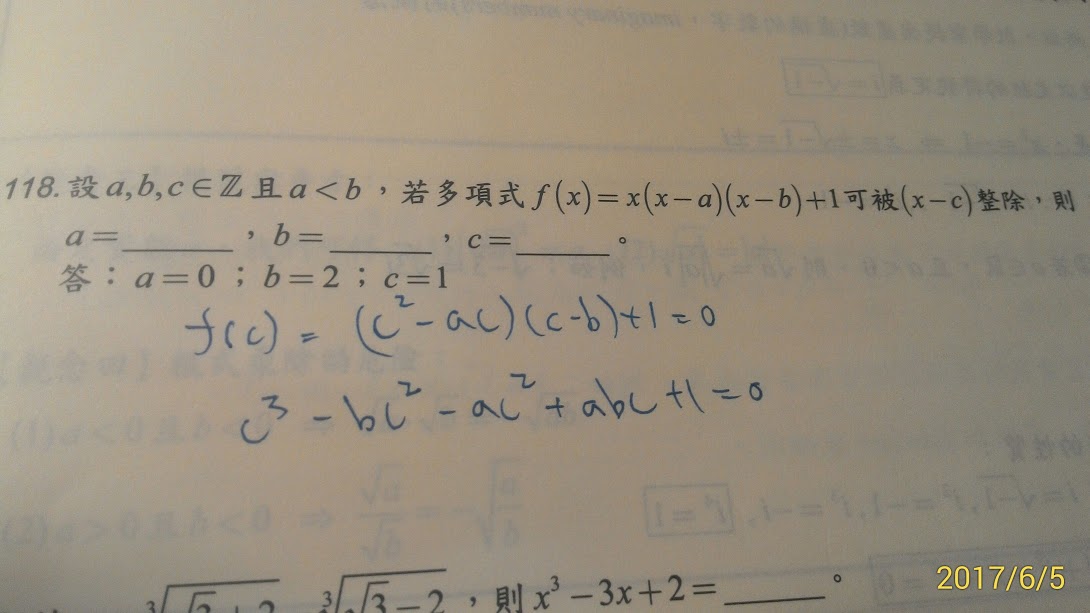 118. 設 a, b, c ∈ ℤ 且 a < b，若多項式 f(x) = x(x−a)(x−b)+1 可被 (x−c) 整除，則
a = ______，b = ______，c = ______。
答：a = 0；b = 2；c = 1
f(c) = (c² − ac)(c−b)+1 = 0
c³ − bc² − ac² + abc + 1 = 0
，則 x³ − 3x + 2 = ______。
2017/6/5